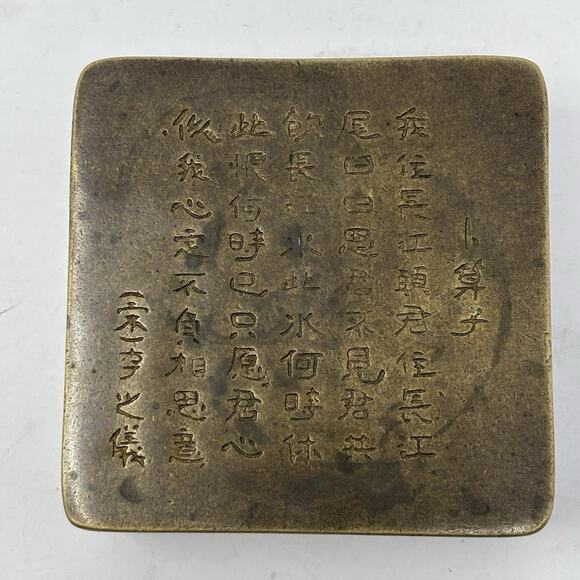 卜算子
我住長江頭君住長江
尾日日思君不見君共
飲長江水此水何時休
此恨何時已只愿君心
似我心定不負相思意
宋李之儀